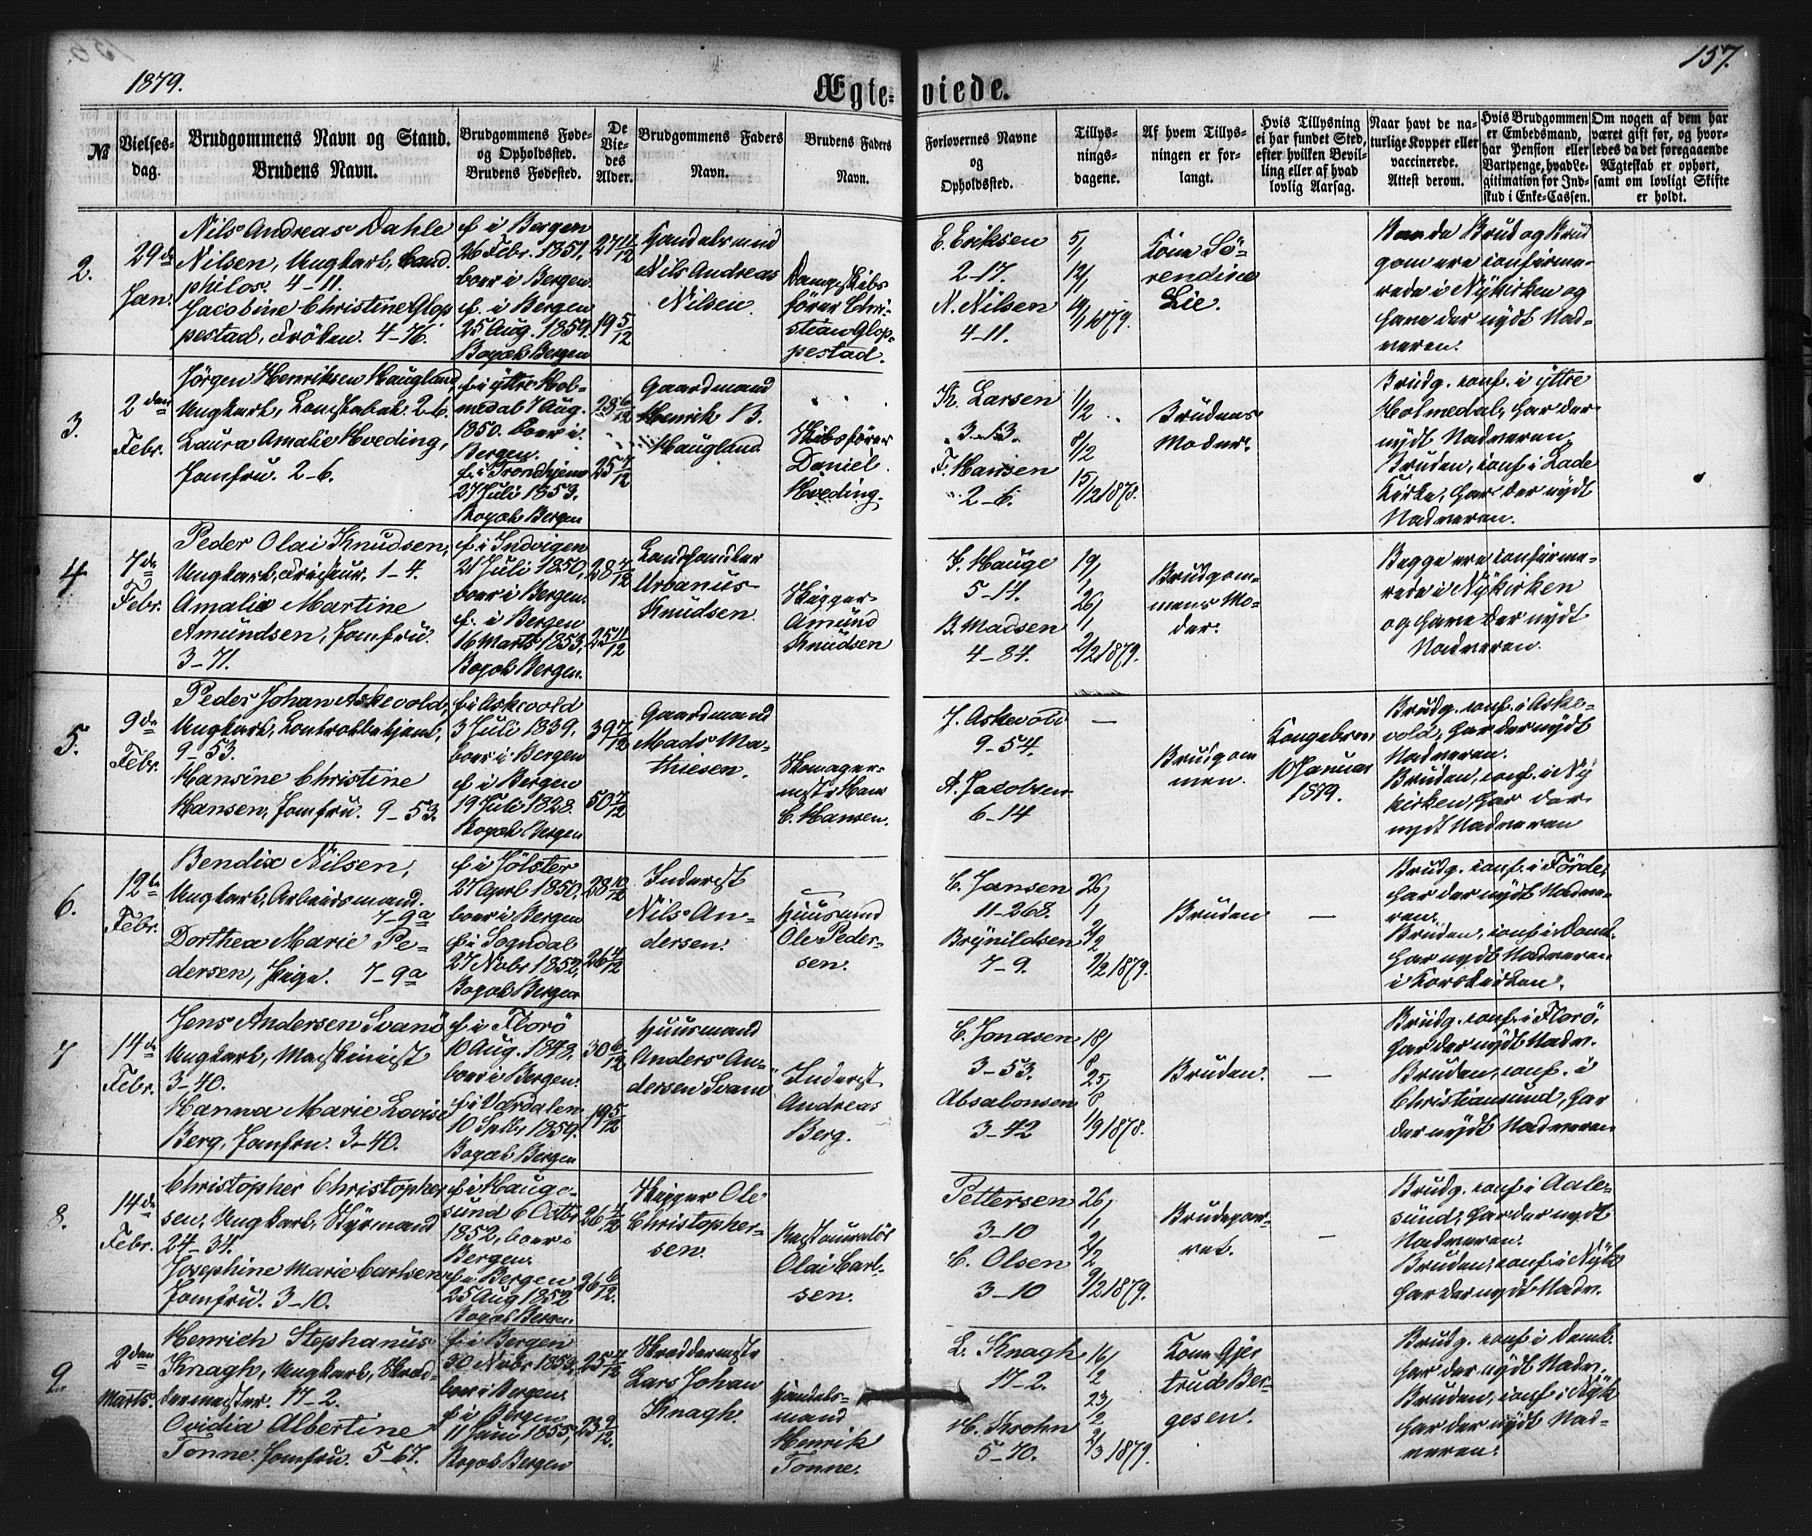 1879.
Ægte-viede.
157.
№
Vielses-
dag.
Brudgommens Navn og Stand.
Brudens Navn.
Brudgommens Føde-
og Opholdssted.
Brudens Fødested.
De
Vie-
des
Alder.
Brudgommens Faders
Navn.
Brudens Faders
Navn.
Forlovernes Navne
og
Opholdssted.
Tillys-
nings-
dagene.
Af hvem Tillys-
ningen er for-
langt.
Hvis Tillysning
ei har fundet Sted,
efter hvilken Bevil-
ling eller af hvad
lovlig Aarsag.
Naar havt de na-
turlige Kopper eller
vaccinerede.
Attest derom.
Hvis Brudgommen
er Embedsmand,
har Pension eller
Vartpenge, hvad Le-
gitimation for Ind-
skud i Enke-Cassen.
Om nogen af dem har
været gift før, og hvor-
ledes da det foregaaende
Ægteskab er ophørt,
samt om lovligt Skifte
er holdt.
2.
29 de
Jan.
Nils Andreas Dahle
Nilsen, Ungkarl, Cand.
philos. 4-11.
Jacobine Christine Glop
pestad, Frøken. 4-76.
f. i Bergen
26 Febr. 1851.
boer i Bergen.
f. i Bergen
25 Aug. 1859.
Bopæl Bergen
27 11/12
19 5/12
Handelsmand
Nils Andreas
Nilsen.
Dampskibs
fører Chri-
stian Glop-
pestad.
E. Eriksen
2-17.
N. Nilsen
4-11.
5/1
12/1
19/1 1879.
Kone Sø-
rendine
Lie.
Baade Brud og Brud
gom ere confirme-
rede i Nykirken og
have der nydt Nad-
veren.
3.
2 den
Febr.
Jørgen Henriksen Haugland,
Ungkarl, Konstabel. 2-6.
Laura Amalie Hveding,
Jomfru. 2-6.
f. i yttre Hol-
medal 7 Aug.
1850. boer i
Bergen.
f. i Trondhjem
27 Juli 1853.
Bopæl Bergen
28 6/12
25 7/12
Gaardmand
Henrik B.
Haugland
Skibsfører
Daniel
Hveding.
Th. Larsen
3-13.
F. Hansen
2-6.
1/12
8/12
15/12 1878.
Brudens
Moder.
Brudg. conf. i yttre
Holmedal, har der
nydt Nadveren.
Bruden, conf. i Lade
Kirke, har der nydt
Nadveren.
4
7 de
Febr.
Peder Olai Knudsen,
Ungkarl, Friseur. 1-4.
Amalia Martine
Amundsen, Jomfru.
3-71.
f. i Indvigen
21 Juli 1850,
boer i Bergen.
f. i Bergen
16 Marts 1853.
Bopæl Bergen.
28 4/12
25 11/12
Landhandler
Urbanus
Knudsen
Skipper
Amund
Knudsen
F. Hauge
5-14.
B. Madsen
4-84.
19/1
26/1
2/2 1879.
Brudgom-
mens Mo-
der.
Begge ere confirme-
rede i Nykirken
og have der nydt
Nadveren.
5.
9 de
Febr.
Peder Johan Askevold,
Ungkarl, Kontrolbetjent,
9-53.
Hansine Christine
Hansen, Jomfru. 9-53.
f. i Askevold
3 Juli 1839.
boer i Bergen
f. i Bergen
19 Juli 1828.
Bopæl Bergen
39 7/12
50 7/12
Gaardmand
Mads Ma-
thiesen.
Skomager-
mester Hans
C. Hansen.
J. Askevold
9-54.
A. Jacobsen
6-14
—
Brudgom
men.
Kongebrev
10 Januar
1879.
Brudg. conf. i Aske-
vold, har der nydt
Nadveren.
Bruden, conf. i Ny
kirken, har der
nydt Nadveren
6.
12 te
Febr.
Bendix Nilsen,
Ungkarl, Arbeidsmand.
7-9a
Dorthea Marie Pe-
dersen, Pige. 7-9a
f. i Jølster
27 April 1850.
boer i Bergen
f. i Sogndal
27 Novbr 1852,
Bopæl Bergen
28 10/12
26 4/12
Inderst
Nils An-
dersen.
Huusmand
Ole Peder-
sen.
C. Jansen
11-268.
Brynildsen
7-9.
26/1
2/2
9/2 1879.
Bruden
—
Brudg. conf. i Førde,
har der nydt Nadve-
ren.
Bruden, conf. i Domk.
har nydt Nadveren
i Korskirken.
7
14 de
Febr.
Jens Andersen Svanø
Ungkarl, Maskinist
3-40.
Hanna Marie Lovise
Berg, Jomfru. 3-40.
f. i Florø
10 Aug. 1848.
boer i Bergen.
f. i Værdalen
10 Septbr 1859.
Bopæl Bergen
30 6/12
19 5/12
Huusmand
Anders An-
dersen Svanø
Inderst
Andreas
Berg.
C. Jonassen
3-53.
Absalonsen
3-42
18/8
25/8
1/9 1878.
Bruden.
—
Brudg. conf. i Florø,
har der nydt Nadv.
Bruden, conf. i
Christiansund, har
der nydt Nadveren
8.
14 de
Febr.
Christopher Christopher
sen, Ungkarl, Styrmand
24-34.
Josephine Marie Carlsen
Jomfru. 3-10.
f. i Hauge-
sund 6 Octbr
1852, boer i
Bergen.
f. i Bergen
25 Aug 1852
Bopæl Bergen
26 4/12
26 6/12.
Skipper Ole
Christopher-
sen.
Restauratør
Olai Carl-
sen.
Pettersen
3-10
C. Olsen
3-10
26/1
2/2
9/2 1879.
Brudepar-
ret.
—
Brudg. conf. i Aale-
sund, har der nydt
Nadveren.
Bruden, conf. i Nyk
har der nydt Nadv.
9.
2 den
Marts.
Henrich Stephanus
Knagh, Ungkarl, Skræd-
dermester. 17-2.
Ovidia Albertine
Tonne, Jomfru. 5-67.
f. i Bergen
30 Novbr 1853,
boer i Bergen.
f. i Bergen
11 Juni 1855,
Bopæl Bergen
25 4/12
23 9/12.
Skræddermester
Lars Johan
Knagh.
Handels-
mand
Henrik
Tonne.
L. Knagh
17-2.
H. Krohn
5-70.
16/2
23/2
2/3 1879.
Kone Gjer
trud Ber-
gesen.
Brudg. conf. i Domk.
har der nydt Nadv.
Bruden, conf. i Nyk
har der nydt Nad-
veren.